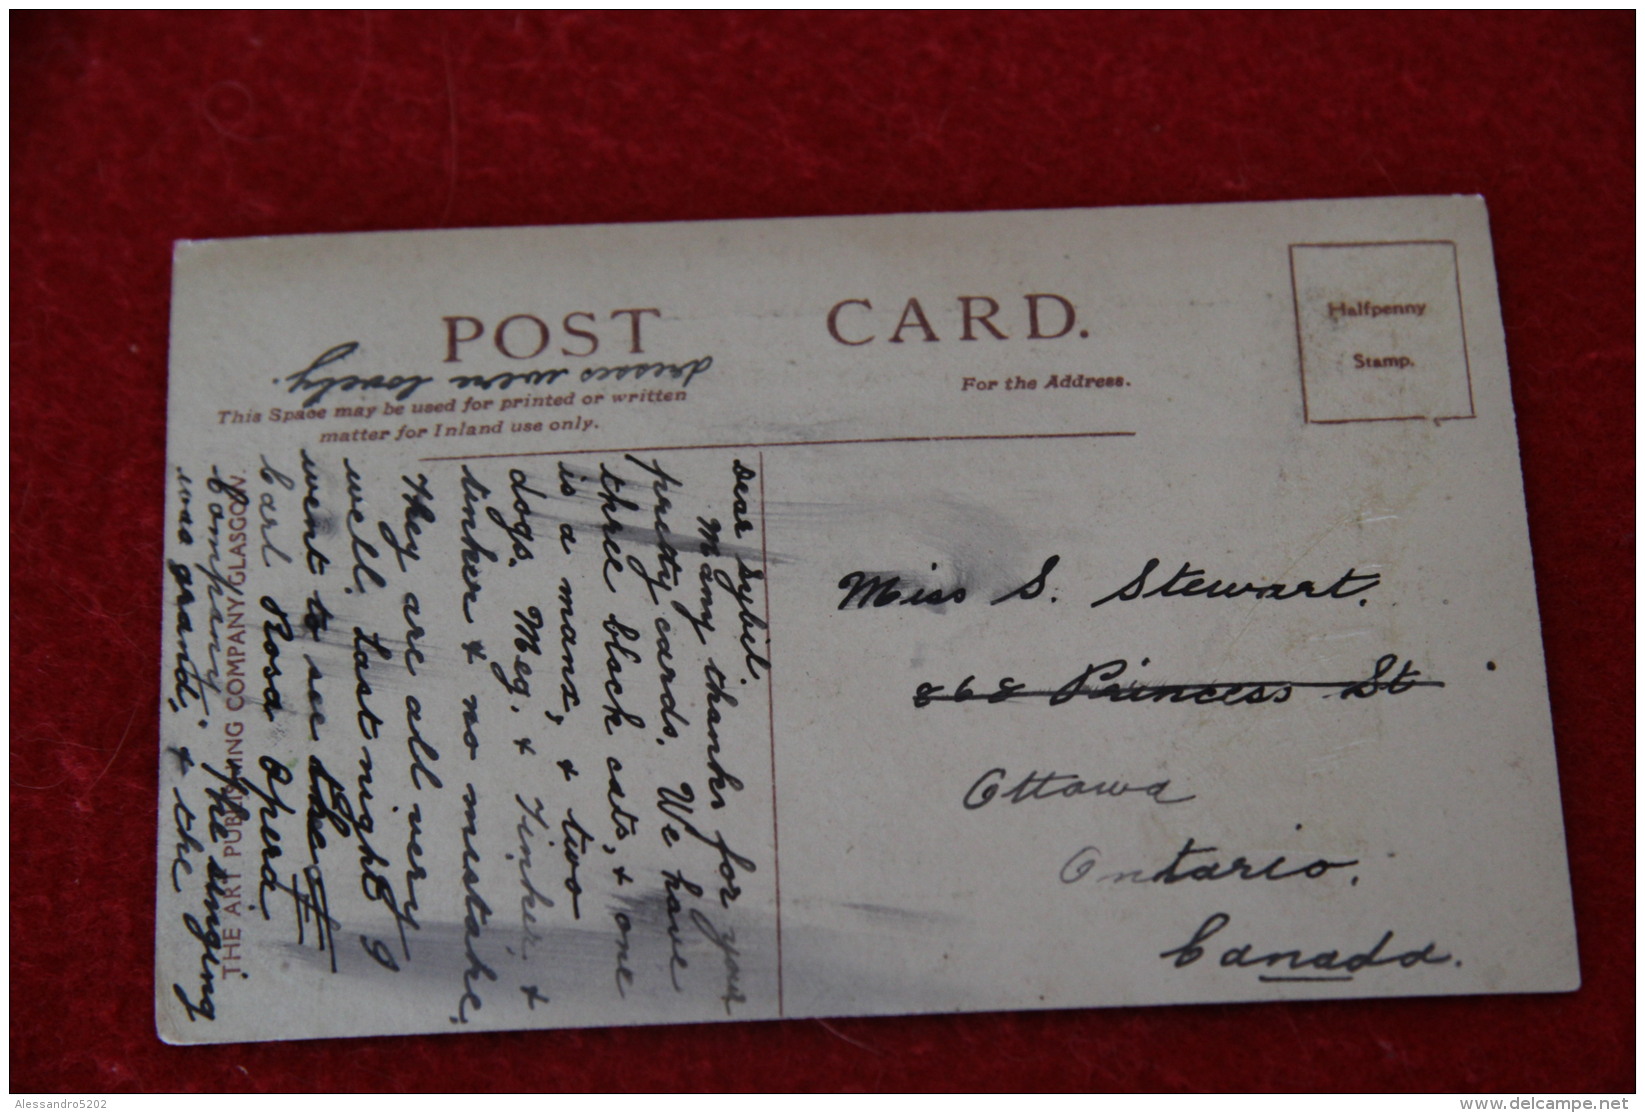 POST CARD.
Halfpenny
Stamp.
This Space may be used for printed or written
matter for Inland use only.
For the Address.
Dear Sybil.
Many thanks for your
pretty cards. We have
three black cats, & one
is a manx, & two
dogs. Meg. & Tinker. &
tinker & no mistake.
They are all very
well. Last night I
went to see the F
Carl Rosa Opera
Company. The singing
was grand, & the
dresses were lovely.
THE ART PUBLISHING COMPANY, GLASGOW.
Miss S. Stewart.
868 Princess St
Ottawa
Ontario.
Canada.
Alessandro5202
delcampe.net